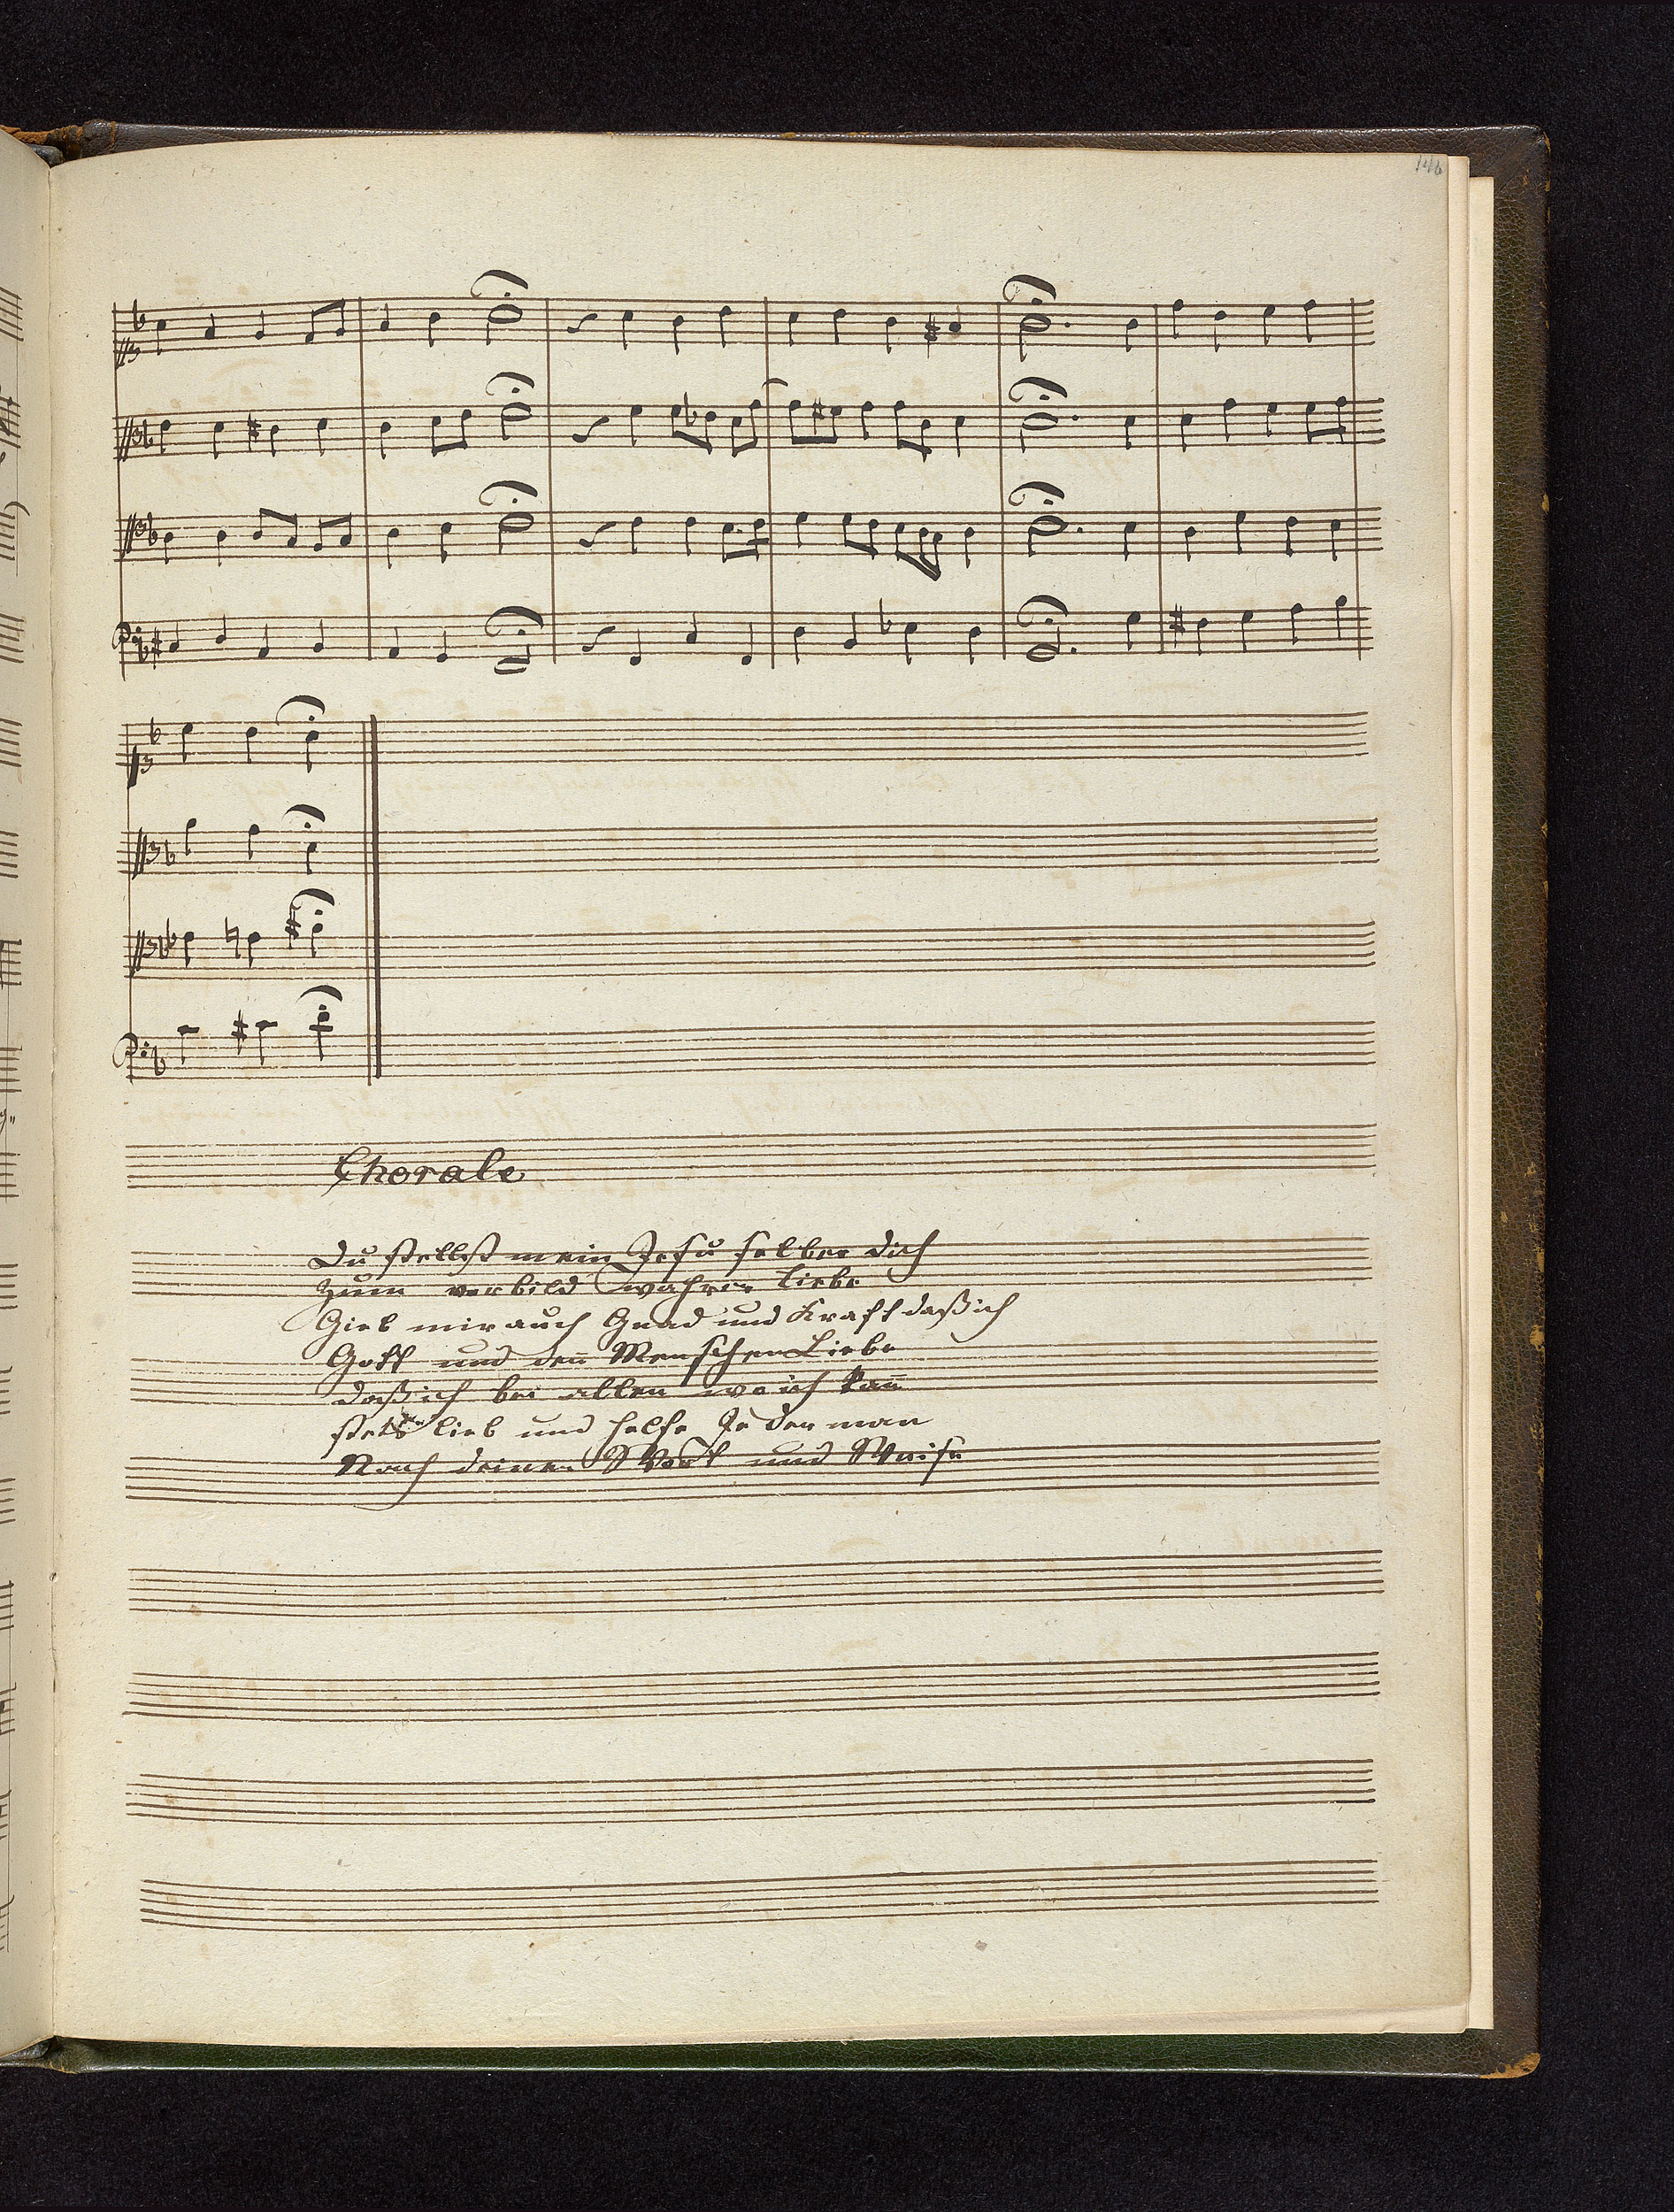 146
Chorale
Du stellst mein Jesu selber dich
zum vorbild wahrer Liebe
Gieb mir auch Gnad und Kraft daß ich
Gott und den̄ Menschen Liebe
daß ich bei allen wo ich kan̄
stets lieb und helfe Jederman
Nach deinem Wort und Weise